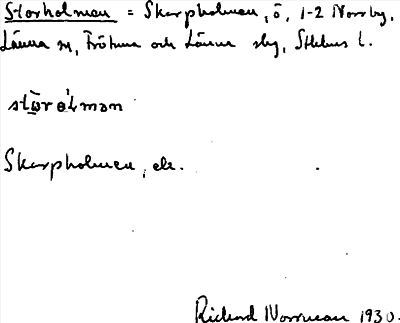 Storholmen = Skarpholmen, ö, 1-2 Norrby,
Länna sn, Frötuna och Länna slg, Sthlms l.
Skarpholmen, ek.
Rickard Norrman 1930.